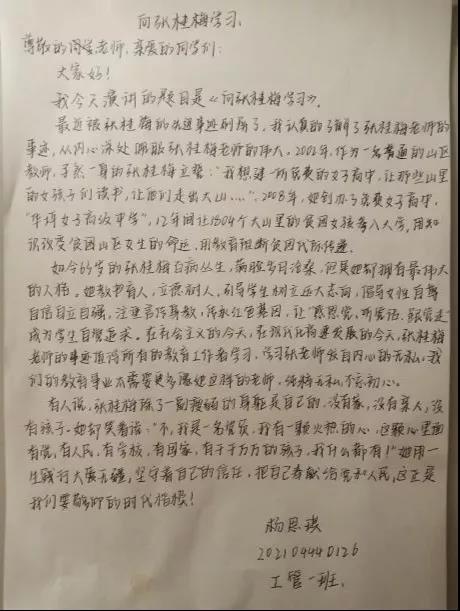 向张桂梅学习
尊敬的周堂老师,亲爱的同学们:
大家好!
我今天演讲的题目是《向张桂梅学习》。
最近被张桂梅的先进事迹刷屏了,我认真的了解了张桂梅老师的
事迹,从内心深处佩服张桂梅老师的伟大。2002年,作为一名普通的山区
教师,孑然一身的张桂梅立誓:“我想建一所免费的女子高中,让那些山里
的女孩子们读书,让她们走出大山……”。2008年,她创办了免费女子高中,
“华坪女子高级中学”,12年间让1804个大山里的贫困女孩考入大学,用知
识改变贫困山区女生的命运,用教育阻断贫困代际传递。
如今63岁的张桂梅百病丛生,满脸岁月沧桑,但是她却拥有最伟大
的人格。她教书育人,立德树人,引导学生树立远大志向,倡导女性自尊
自信自立自强,注重言传身教,传承红色基因,让“感恩党、听党话、跟党走”
成为学生自觉追求。在社会主义的今天,在现代化高速发展的今天,张桂梅
老师的事迹值得所有的教育工作者学习,学习张老师发自内心的无私,我
们的教育事业太需要更多像她这样的老师,纯粹无私,不忘初心。
有人说,张桂梅除了一副瘦弱的身躯是自己的,没有家,没有亲人,没
有孩子。她却笑着说:“不,我是一名党员,我有一颗火热的心,这颗心里面
有党,有人民,有学校,有国家,有千千万万的孩子,我什么都有!”她用一
生践行大爱无疆,坚守着自己的信仰,把自己奉献给党和人民,这正是
我们要敬仰的时代楷模!
杨思琪
20210440126
工管一班.